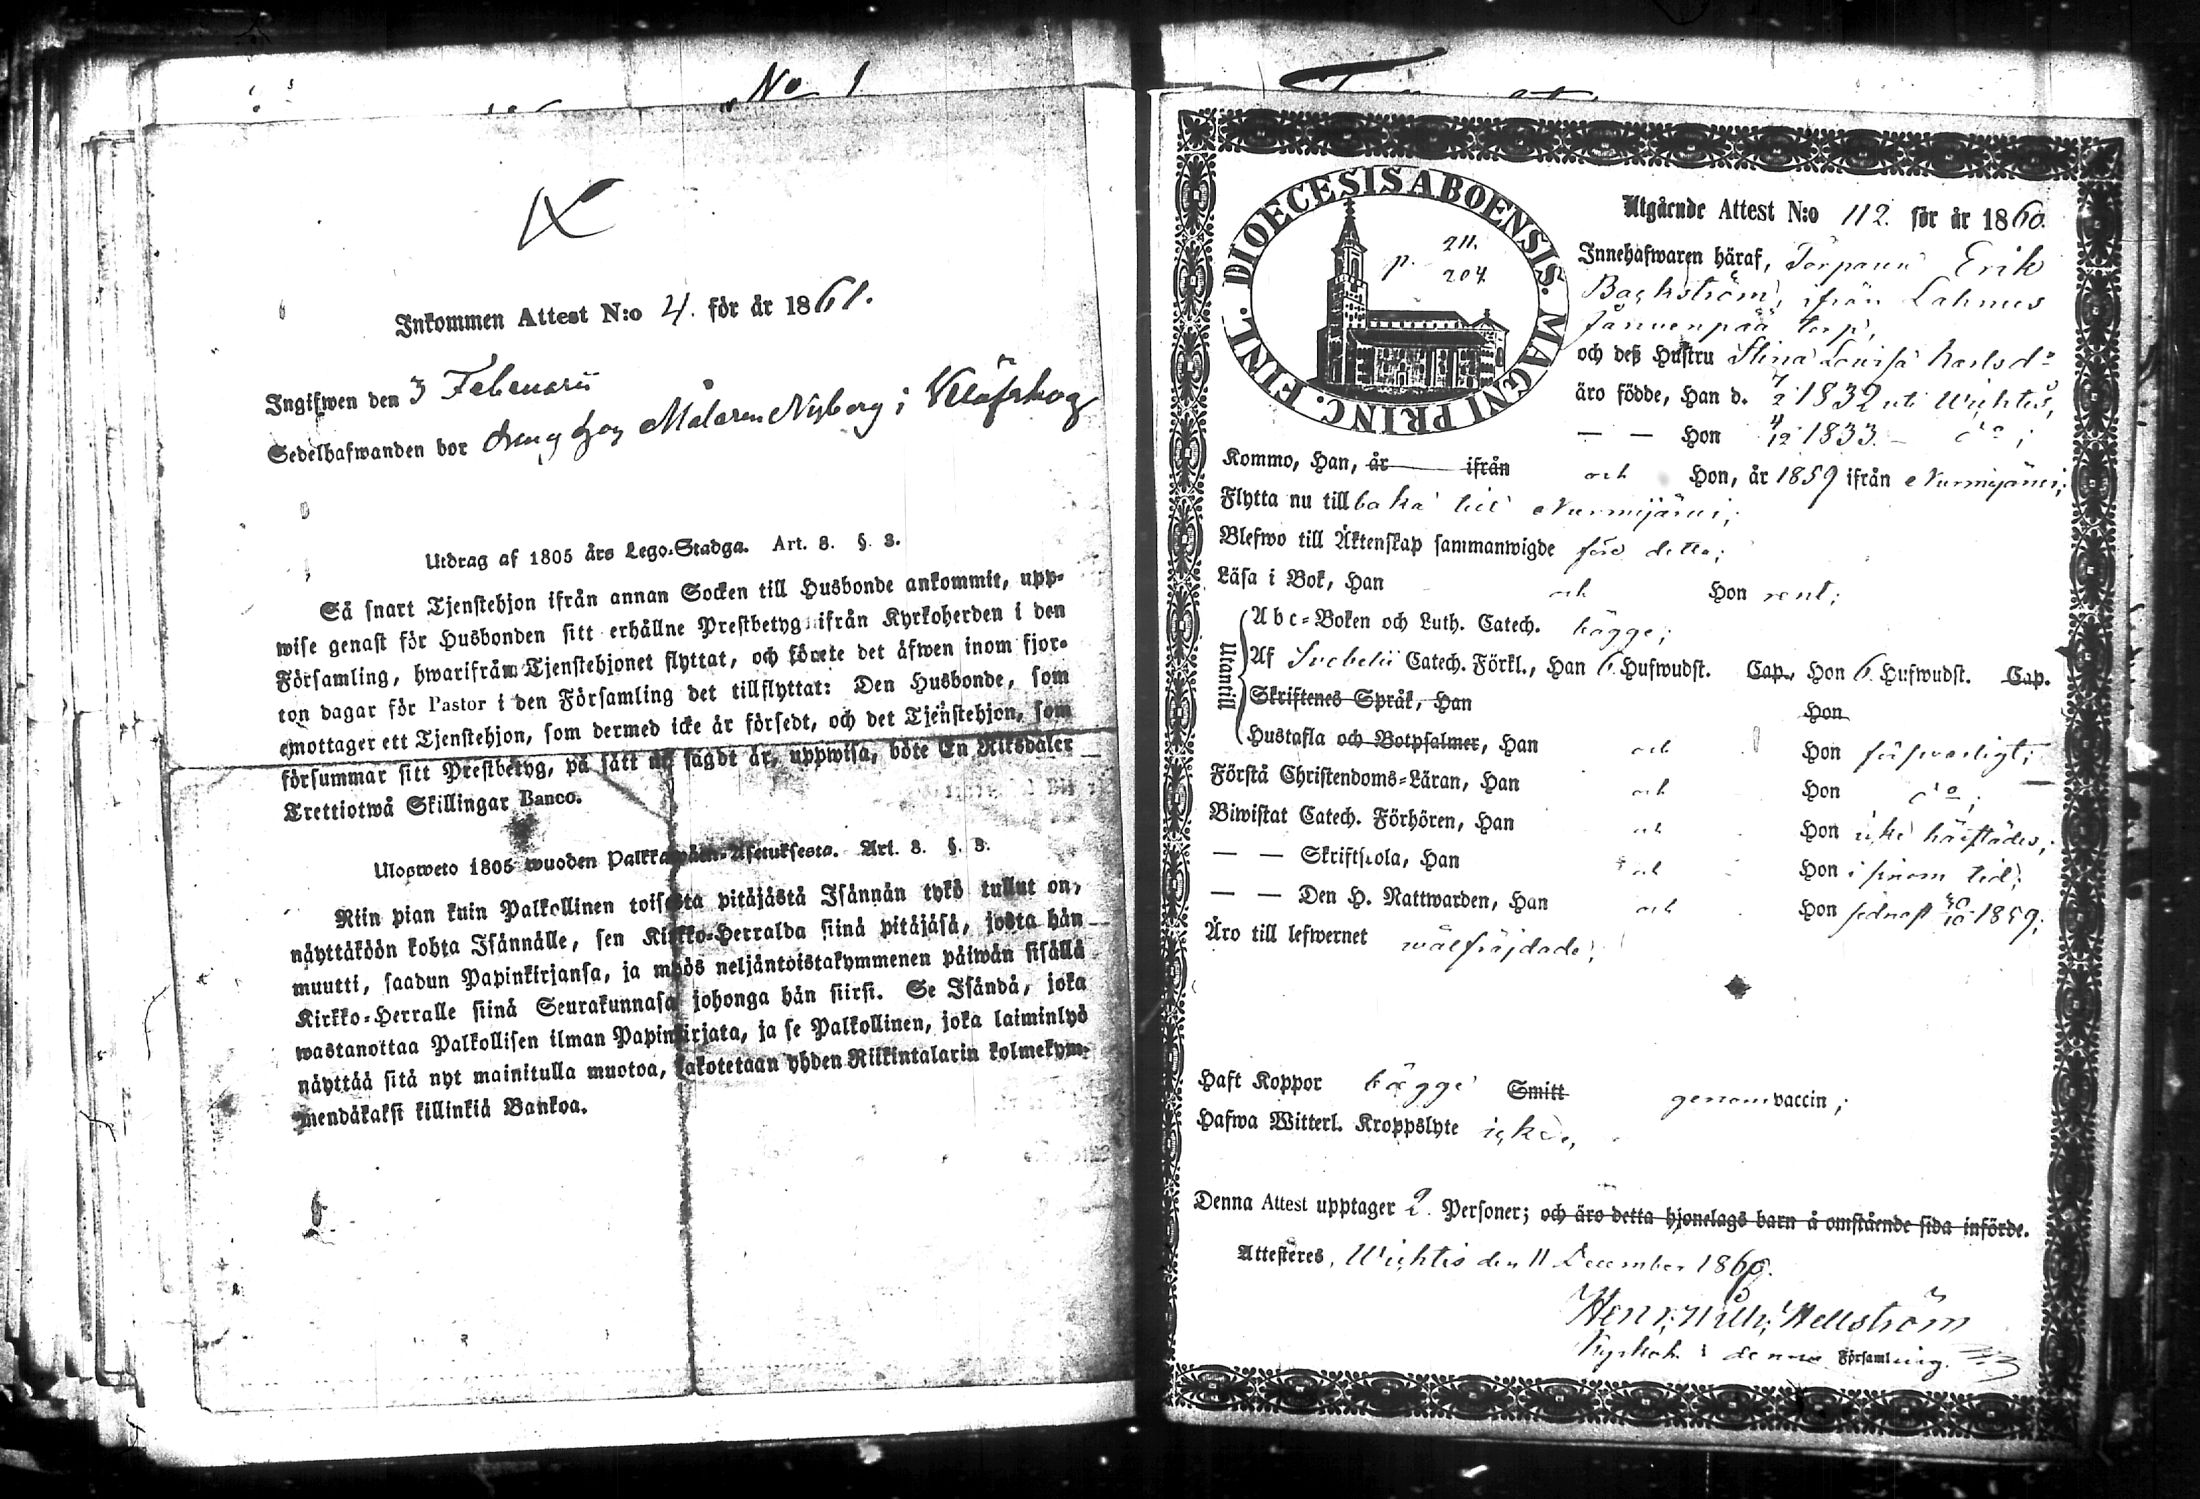 No 1
Inkommen Attest N:o 4. för år 1861.
Ingifwen den 3 Februarii
Sedelhafwanden bor dreng hos Målaren Nyberg i Klöfskog
Utdrag af 1805 års Lego-Stadga. Art. 8. §. 3.
Så snart Tjenstehjon ifrån annan Socken till Husbonde ankommit, upp-
wise genast för Husbonden sitt erhållne Prestbetyg ifrån Kyrkoherden i den
Församling, hwarifrån Tjenstehjonet flyttat, och förete det äfwen inom fjor-
ton dagar för Pastor i den Församling det tillflyttat: Den Husbonde, som
emottager ett Tjenstehjon, som dermed icke är försedt, och det Tjenstehjon, som
försummar sitt Prestbetyg, på sätt nu sagdt är, uppwisa, böte En Riksdaler
Trettiotwå Skillingar Banco.
Ulosweto 1805 wuoden Palkkawäen-Asetuksesta. Art. 8. §. 3.
Niin pian kuin Palkollinen toisesta pitäjästä Isännän tykö tullut on,
näyttäköön kohta Isännälle, sen Kirkko-Herralda siinä pitäjäsä, josta hän
muutti, saadun Papinkirjansa, ja myös neljäntoistakymmenen päiwän sisällä
Kirkko-Herralle siinä Seurakunnasa johonga hän siirsi. Se Isändä, joka
wastanottaa Palkollisen ilman Papinkirjata, ja se Palkollinen, joka laiminlyö
näyttää sitä nyt mainitulla muotoa, sakotetaan yhden Riikintalarin kolmekym-
mendäkaksi killinkiä Bankoa.
DIOECESIS ABOENSIS. MAGNI PRINC. FINL.
p. 211.
204
Utgående Attest N:o 112. för år 1860.
Innehafwaren häraf, Torparen Erik
Backström, ifrån Lahnus
Janvenpää torp,
och deß Hustru Stina Lovisa Karlsd:r
äro födde, Han d. 7/2 1832 uti Wichtis,
— — Hon 4/12 1833 – d:o;
Kommo, Han, år ifrån och Hon, år 1859 ifrån Nurmijärvi;
Flytta nu tillbaka till Nurmijärvi;
Blefwo till Äktenskap sammanwigde före detta;
Läsa i Bok, Han och Hon rent;
Utantill
Abc-Boken och Luth. Catech. bägge;
Af Svebelii Catech. Förkl., Han 6 Hufwudst. Cap., Hon 6 Hufwudst. Cap.
Skriftenes Språk, Han Hon
Hustafla och Botpsalmer, Han och Hon försvarligt;
Förstå Christendoms-Läran, Han och Hon d:o;
Biwistat Catech. Förhören, Han och Hon icke härstädes;
— — Skriftskola, Han och Hon i sinom tid;
— — Den H. Nattwarden, Han och Hon sednast 30/10 1859;
Äro till lefwernet wälfräjdade;
Haft Koppor bägge Smitt genom vaccin;
Hafwa Witterl. Kroppslyte icke,
Denna Attest upptager 2. Personer; och äro detta hjonelags barn å omstående sida införde.
Attesteres, Wichtis den 11 December 1860.
Henr: Wilh: Hellström
Kyrkoh. i denna Församling.